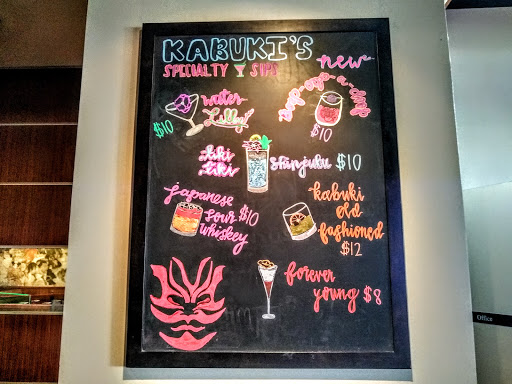 KABUKI'S
SPECIALTY SIPS
new
water
Lilly
$10
$10
tiki
tiki
shinjuku $10
japanese
sour $10
whiskey
kabuki
old
fashioned
$12
forever
young $8
Office